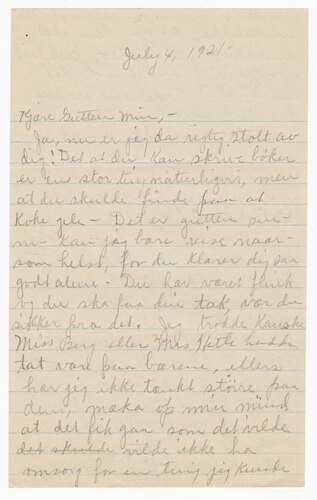 July 4, 1921-
Kjære Gutten Min,-
Ja, nu er jeg da rigtig stolt av
dig! Det at du kan skrive bøker
er en stor ting naturligvis, men
at du skulde finde paa at
koke gele - Det er gutten sin-
nu kan jeg bare reise naar-
somhelst, for du klarer dig saa
godt alene. Du har været flink
og du ska faa din tak, vær du
sikker paa det. Jeg trodde kanske
Miss Berg eller Mrs. hadde
tat vare paa bærene, ellers
har jeg ikke tænkt større paa
dem, maka op min mind
at det fik gaa som det vilde
det skulde vilde ikke ha
omsorg for en ting jeg kunde